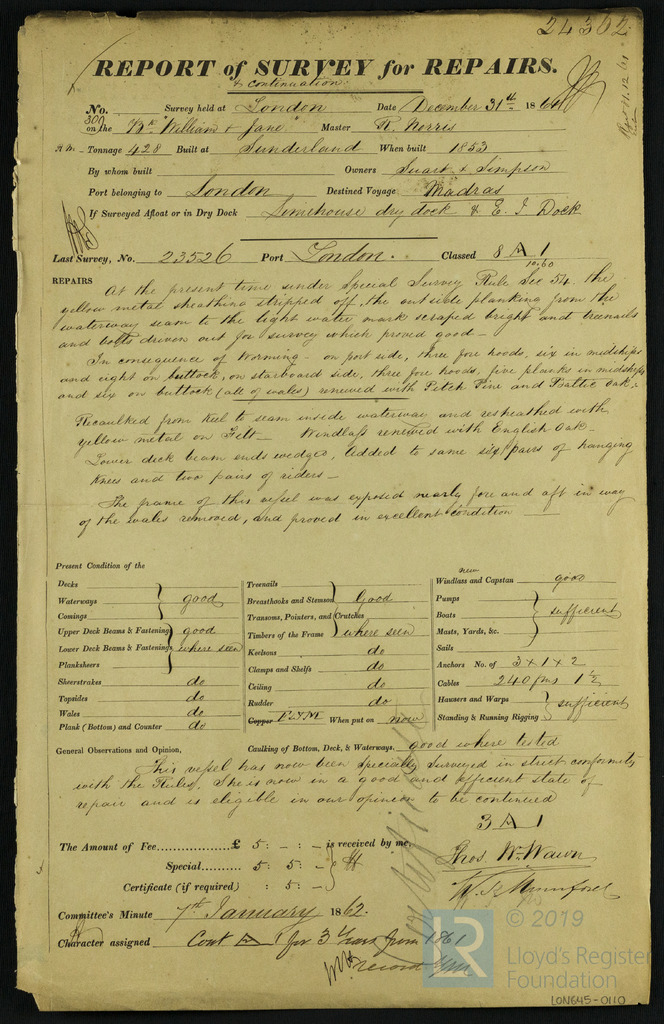 24302
REPORT of SURVEY for REPAIRS.
& continuation
No. Survey held at London Date December 31st 1861
300 on the Bk "William & Jane" Master R. Norris
Tonnage 428 Built at Sunderland When built 1853
By whom built Owners & Simpson
Port belonging to London Destined Voyage Madras
If Surveyed Afloat or in Dry Dock Limehouse dry dock & E. I Dock
Last Survey, No. 23526 Port London. Classed 8 A 1
10.60
REPAIRS At the present time under Special Survey Rule Sec 54. the
yellow metal sheathing stripped off, the outside planking from the
waterway seam to the light water mark scraped bright and treenails
and bolts driven out for survey which proved good —
In consequence of Worming - on port side, three fore hoods, six in midships
and eight on buttock, on starboard side, three fore hoods, five planks in midships
and six on buttock (all of wales) renewed with Pitch Pine and Baltic Oak.
Recaulked from Keel to seam inside waterway and resheathed with
yellow metal on Felt — Windlass renewed with English Oak —
Lower deck beam ends wedged, added to same six pairs of hanging
Knees and two pairs of riders —
The frame of this vessel was exposed nearly fore and aft in way
of the wales removed, and proved in excellent condition —
Present Condition of the
Decks
Waterways good
Comings
Upper Deck Beams & Fastening good
Lower Deck Beams & Fastening where seen
Planksheers
Sheerstrakes do
Topsides do
Wales do
Plank (Bottom) and Counter do
Treenails
Breasthooks and Stemson Good
Transoms, Pointers, and Crutches
Timbers of the Frame where seen
Keelsons do
Clamps and Shelfs do
Ceiling do
Rudder do
Copper F & YM When put on now
new
Windlass and Capstan good
Pumps
Boats sufficient
Masts, Yards, &c.
Sails
Anchors No. of 3 x 1 x 2
Cables 240 fms 1 1/2
Hausers and Warps sufficient
Standing & Running Rigging
General Observations and Opinion, Caulking of Bottom, Deck, & Waterways. good where tested
This vessel has now been specially surveyed in strict conformity
with the Rules, She is now in a good and efficient state of
repair and is eligible in our opinion to be continued
3 A 1
The Amount of Fee £ 5 : - : - is received by me,
Special 5 : 5 : -
Certificate (if required) : 5 : -
Thos. Wm. Wawn
Committee's Minute 7th January 1862.
Character assigned Cont A 1 for 3 Years from 1861
record
© 2019
LR
Lloyd's Register
Foundation
LON645-0110